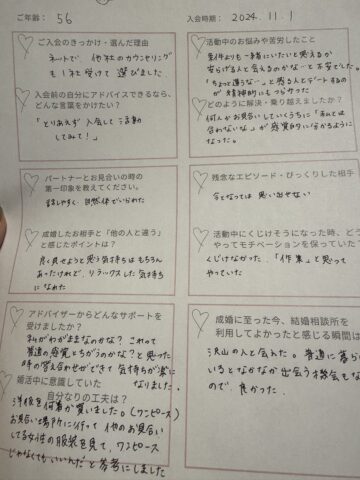 ご年齢: 56
入会時期: 2024.11.1
ご入会のきっかけ・選んだ理由
ネットで 他社のカウンセリング
も1社受けて選びました
入会前の自分にアドバイスできるなら、
どんな言葉をかけたい?
「とりあえず入会して活動
してみて!」
パートナーとお見合いの時の
第一印象を教えてください。
話しやすく、自然体でいられた
成婚したお相手と「他の人と違う」
と感じたポイントは?
良く見せようと思う気持ちはもちろん
あったけれど、リラックスした気持ち
になれた
アドバイザーからどんなサポートを
受けましたか?
私がわがままなのかな?これって
普通の感覚とちがうのかな?と思った
時の答え合わせができて気持ちが楽に
なりました。
婚活中に意識していた
自分なりの工夫は?
洋服を何着か買いました。(ワンピース)
お見合い場所に行って他のお見合い
してる女性の服装を見て、ワンピース
じゃなくてもいいんだと参考にしました
活動中のお悩みや苦労したこと
条件よりも一緒にいたいと思えるか
安らげる人と会えるのかな…と不安でした。
「ちょっと違うな…」と思う人とデートするの
が精神的にもつらかった
どのように解決・乗り越えましたか?
何人かお見合いしていくうちに「私とは
合わないな」が感覚的に分かるように
なった。
残念なエピソード・びっくりした相手
今となっては思い出せない
活動中にくじけそうになった時、どう
やってモチベーションを保っていた?
くじけなかった、「作業」と思って
やっていた
成婚に至った今、結婚相談所を
利用してよかったと感じる瞬間は
沢山の人と会えた。普通に暮ら
いるとなかなか出会う機会もな
ので、良かった。